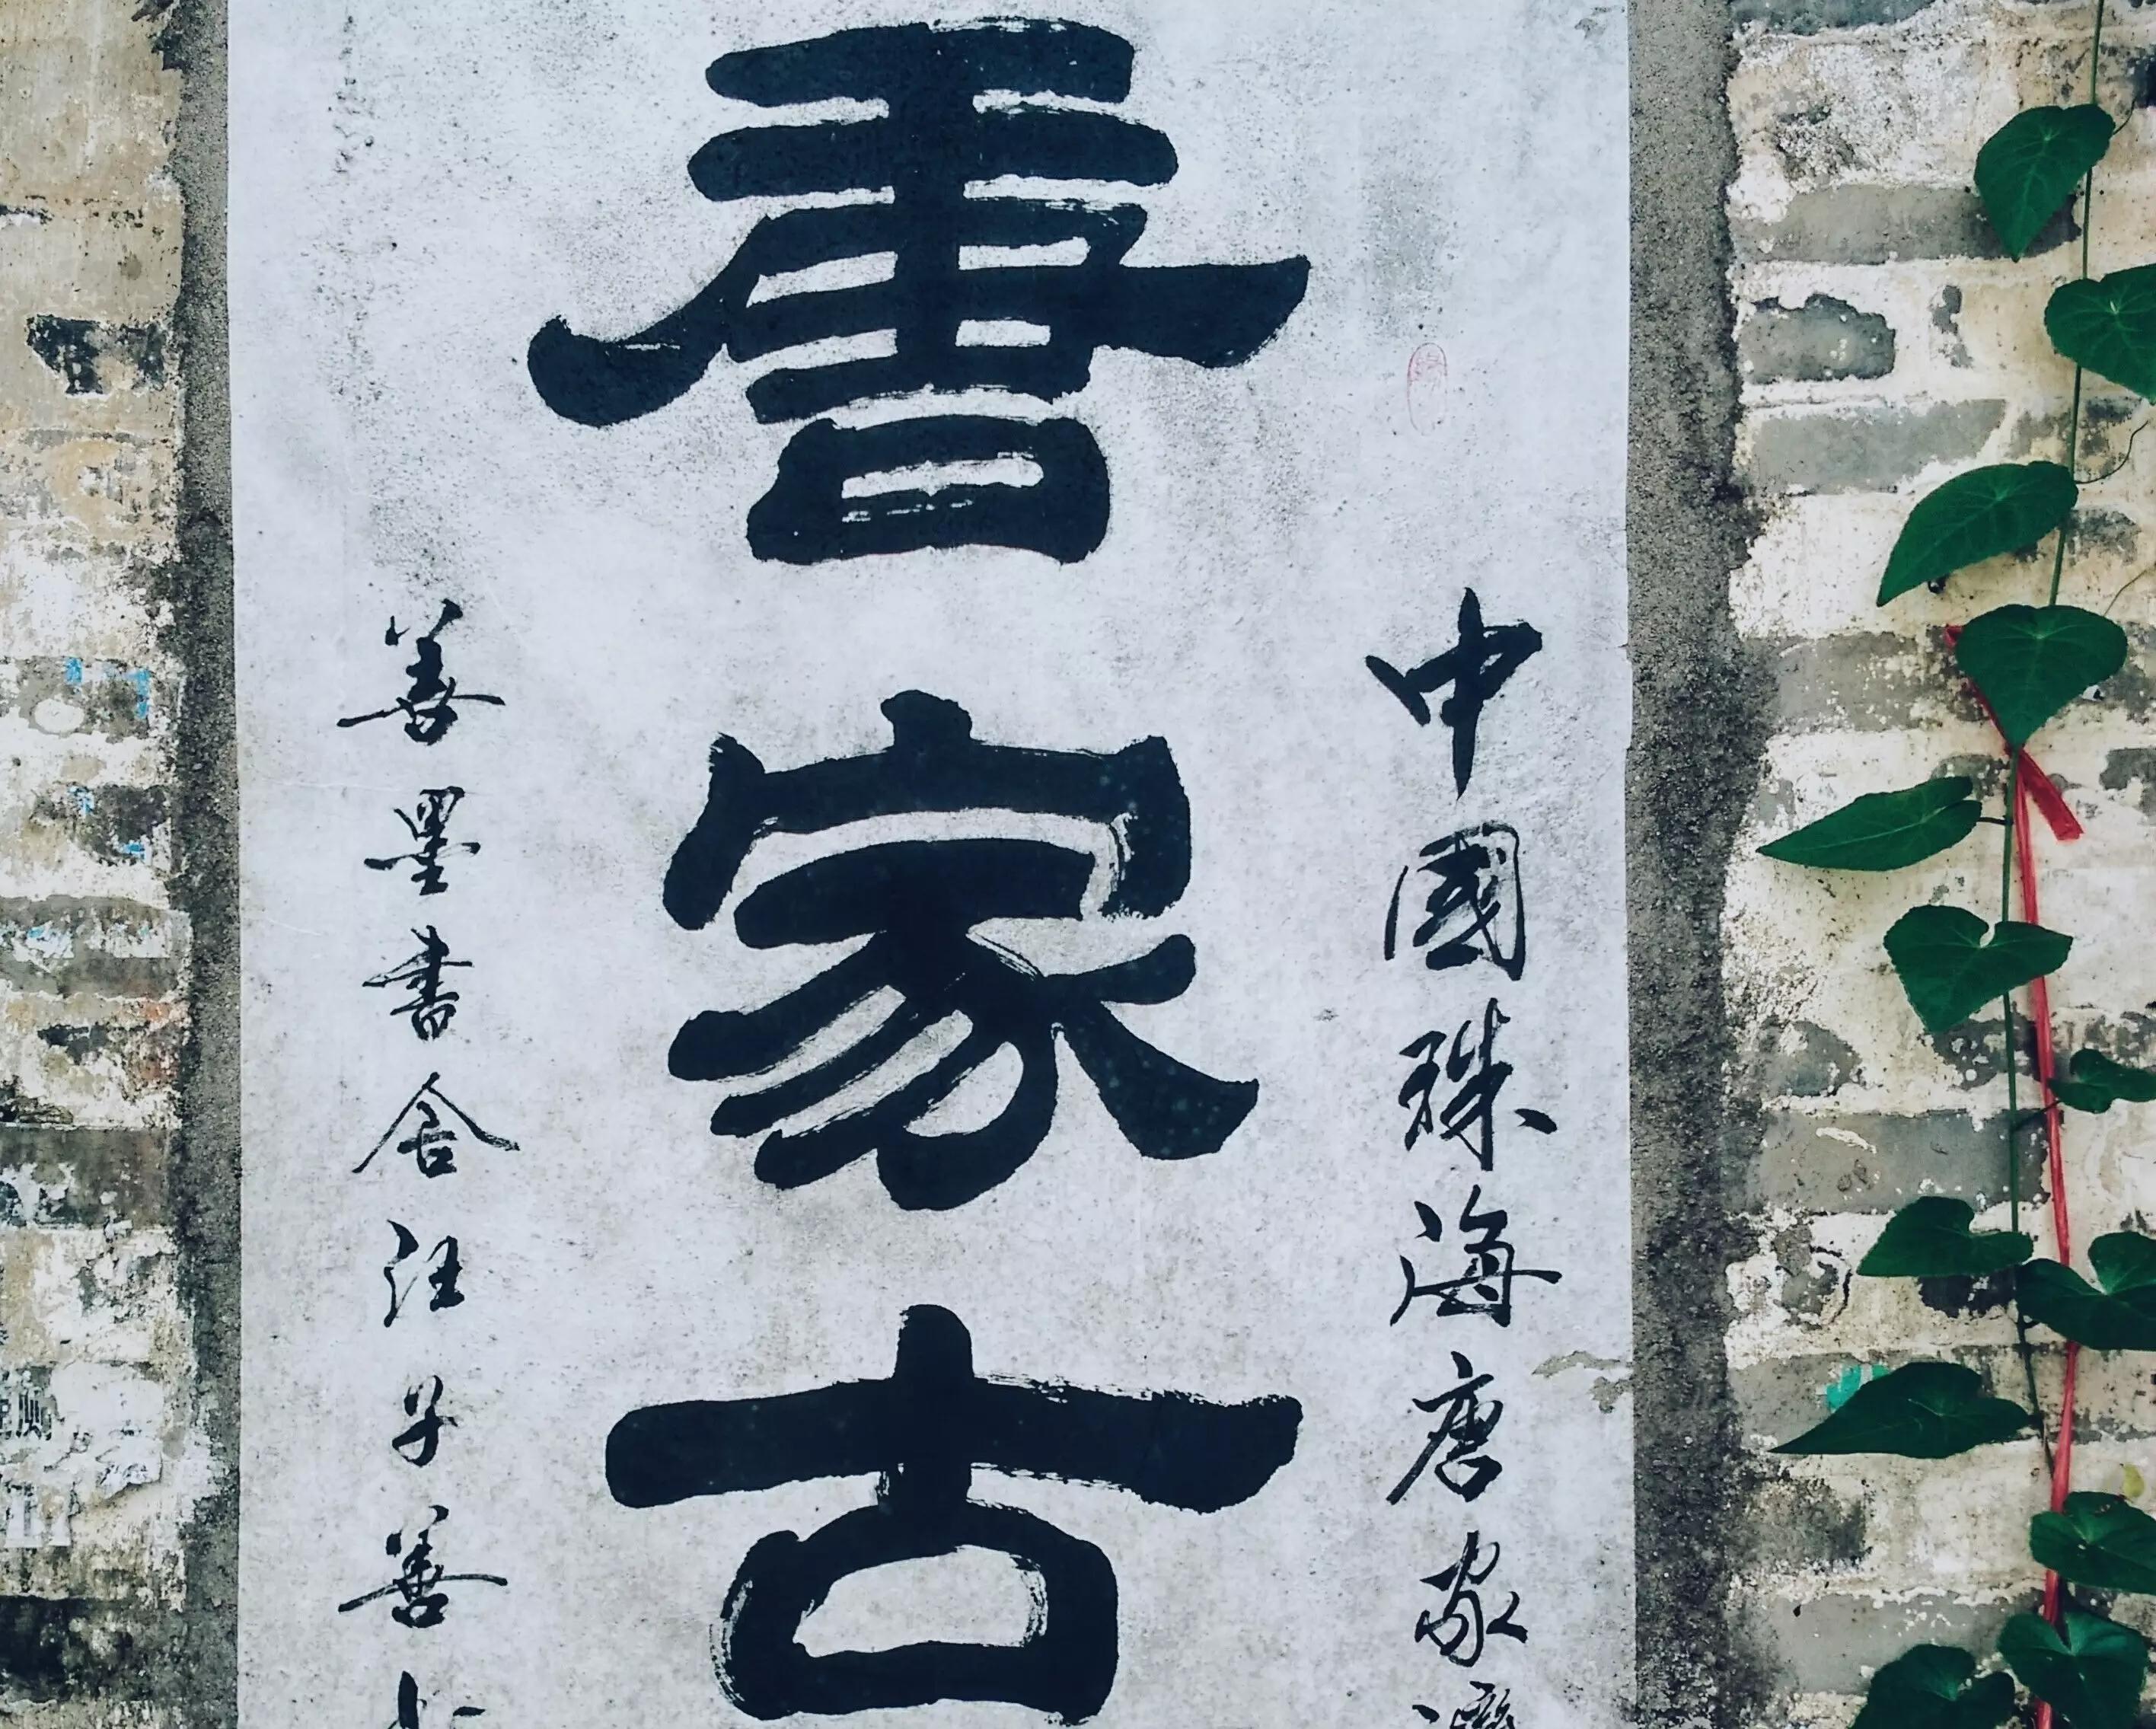 中國珠海唐家灣
唐家古
善墨書舍汪子善